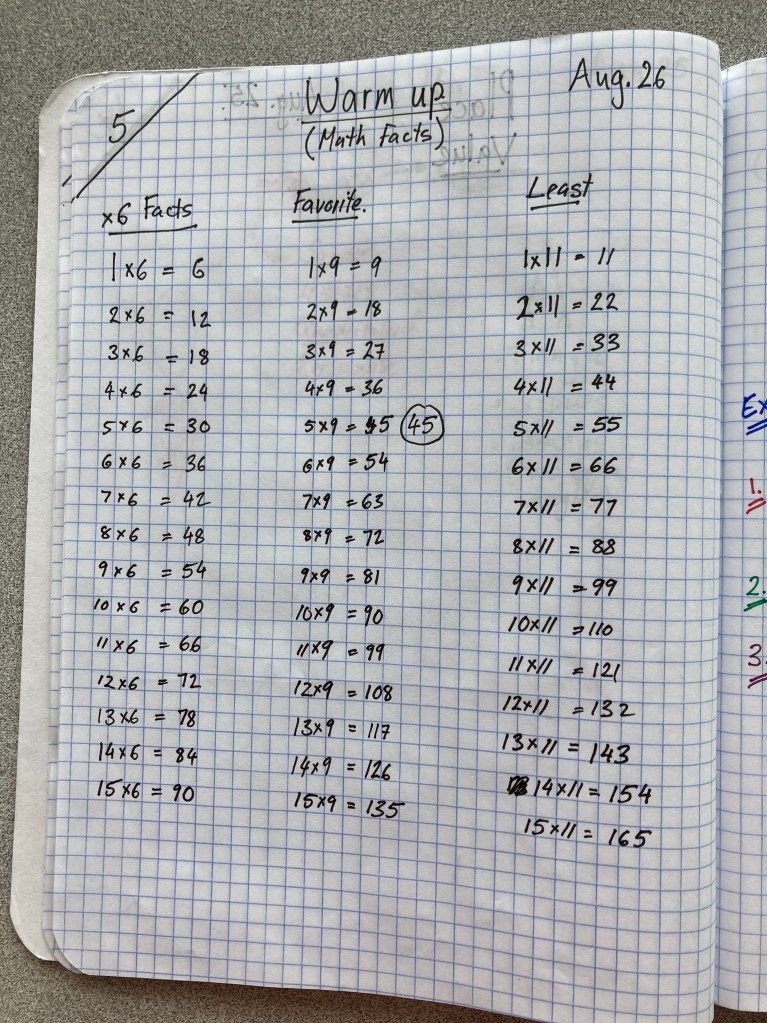 5
Warm up
(Math Facts)
Aug. 26
x6 Facts
1x6 = 6
2x6 = 12
3x6 = 18
4x6 = 24
5x6 = 30
6x6 = 36
7x6 = 42
8x6 = 48
9x6 = 54
10x6 = 60
11x6 = 66
12x6 = 72
13x6 = 78
14x6 = 84
15x6 = 90
Favorite.
1x9 = 9
2x9 = 18
3x9 = 27
4x9 = 36
5x9 = 45 45
6x9 = 54
7x9 = 63
8x9 = 72
9x9 = 81
10x9 = 90
11x9 = 99
12x9 = 108
13x9 = 117
14x9 = 126
15x9 = 135
Least
1x11 = 11
2x11 = 22
3x11 = 33
4x11 = 44
5x11 = 55
6x11 = 66
7x11 = 77
8x11 = 88
9x11 = 99
10x11 = 110
11x11 = 121
12x11 = 132
13x11 = 143
14x11 = 154
15x11 = 165
Ex
1.
2.
3.